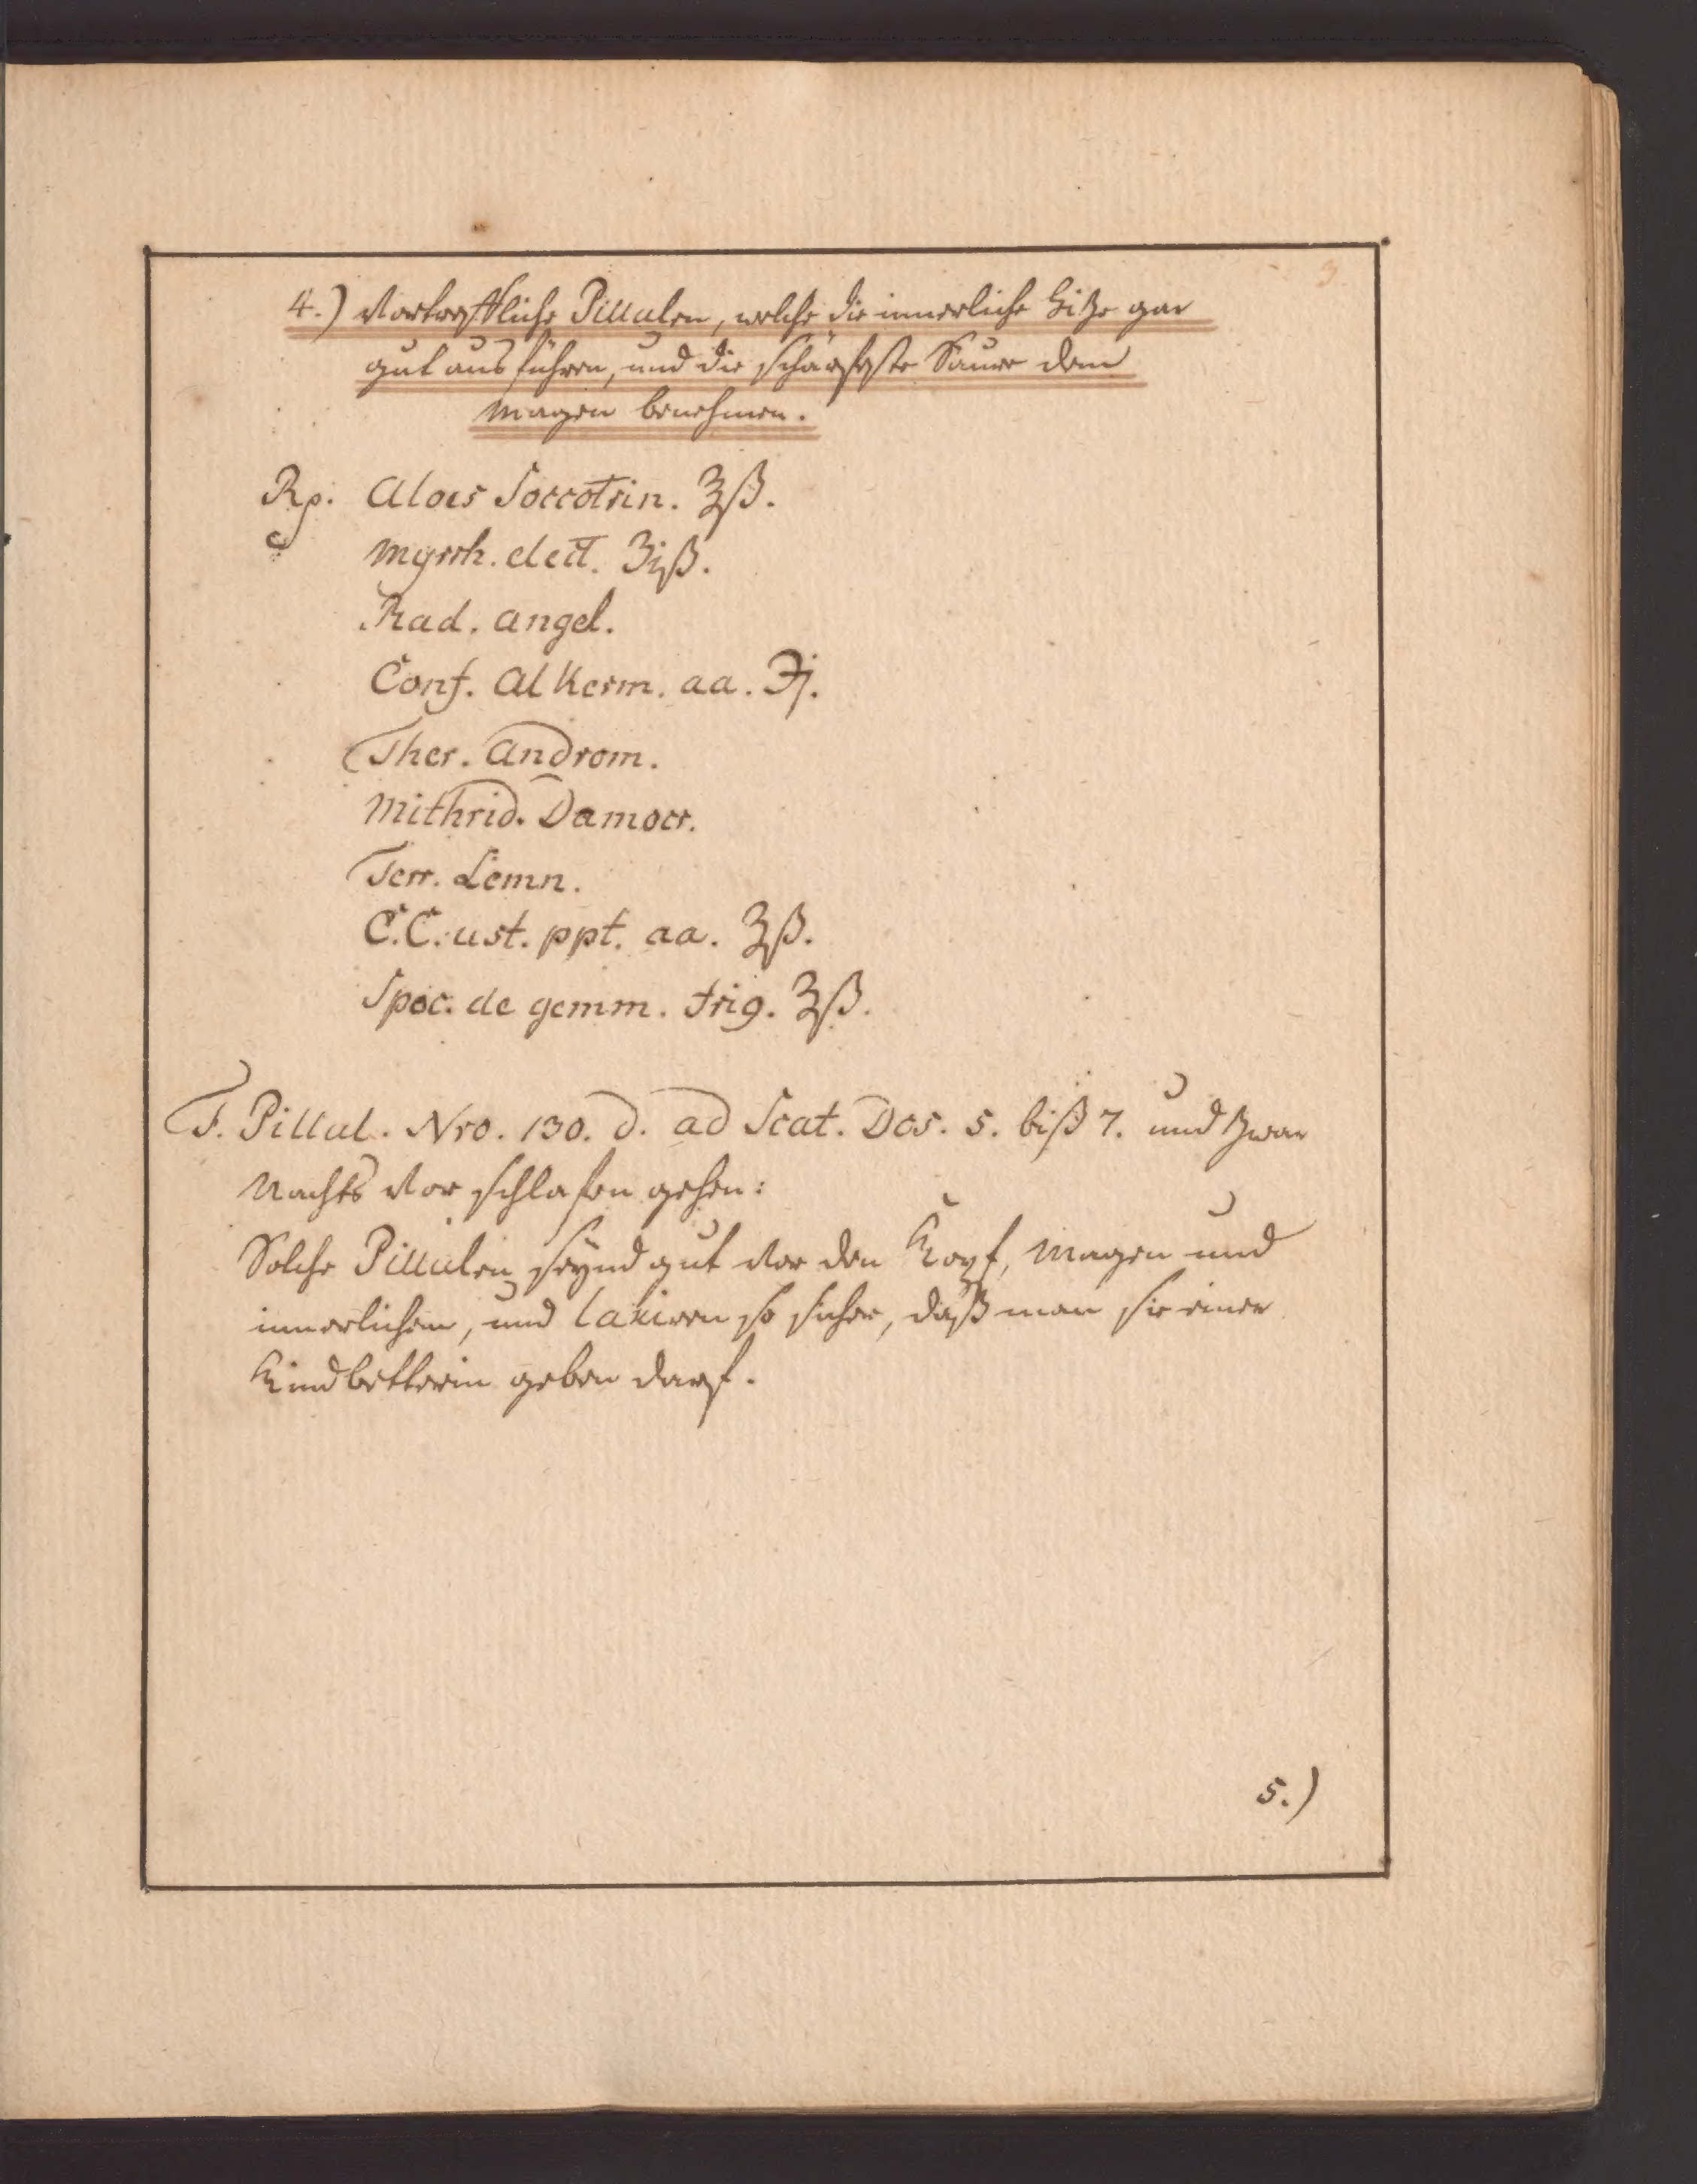 3
4.) Vortrefftliche Pillulen, welche die innerliche Hitze gar
gut ausführen, und die schärfeste Säure dem
Magen benehmen.
Rp. Aloes Soccotrin. ℥ß.
Myrrh. elect. ʒiß.
Rad. Angel.
Conf. Alkerm. aa. ℈j.
Ther. Androm.
Mithrid. Damocr.
Terr. Lemn.
C.C. ust. ppt. aa. ʒß.
Spec. de gemm. frig. ʒß.
F. Pillul. Nro. 130. d. ad Scat. Dos. 5. biß 7. und zwar
Nachts vor schlafen gehen:
Solche Pillulen seynd gut vor den Kopf, Magen und
innerlichen, und laxiren so sicher, daß man sie einer
Kindbetterin geben darf.
5.)